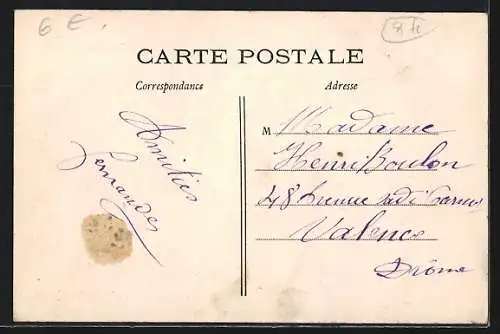 6 €
CARTE POSTALE
Correspondance
Adresse
Amitiés
Fernandes
M Madame
Henri Boulon
48 Avenue Sadi Carnot
Valence
Drôme